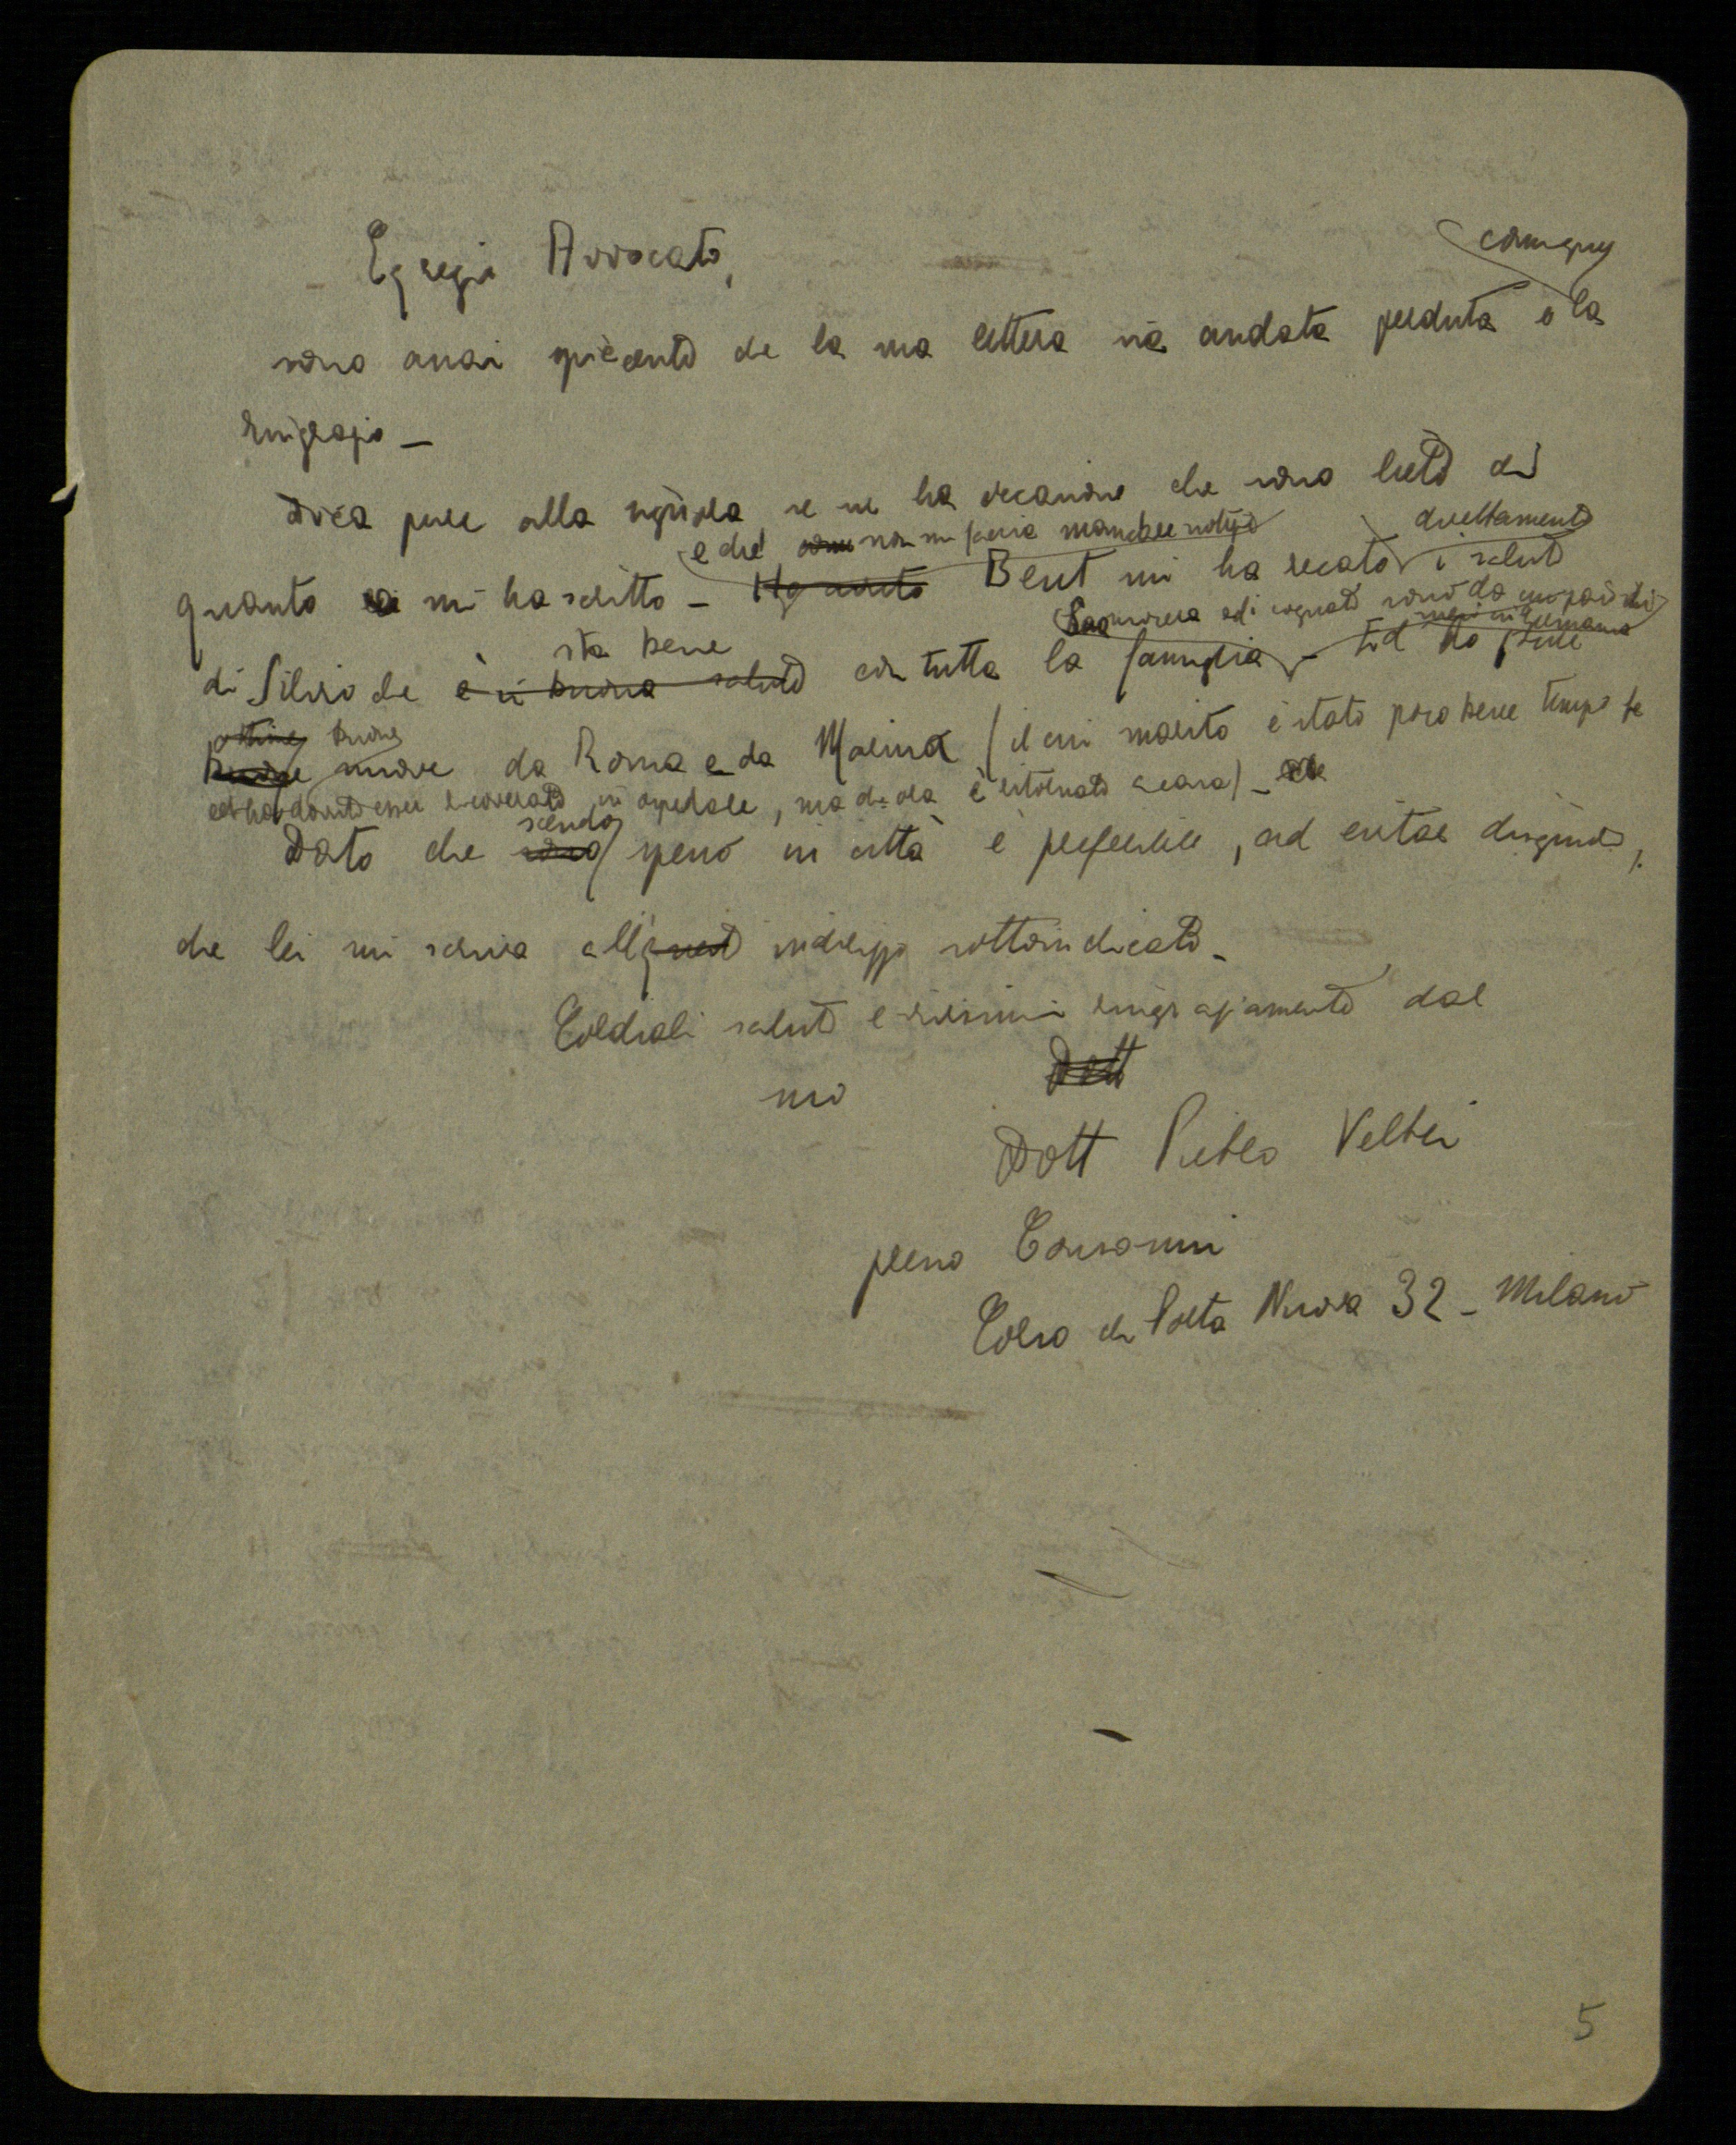 Egregio Avvocato,
comunque
sono assai spiacente che la sua lettera sia andata perduta e la
ringrazio —
Dica pure alla signora se ne ha occasione che sono lieto di
e che non mi faccia mancare notizie
direttamente
quanto mi ha scritto — Ho avuto Bert mi ha recato i saluti
suocera ed i cognati sono da un paio di
mesi in Germania
sta bene
di Silvio che è in buona salute con tutta la famiglia — Ed ho pure
ottime buone
buone nuove da Roma e da Marina (il cui marito è stato poco bene tempo fa
ed ha dovuto essere ricoverato in ospedale, ma ora è ritornato a casa) —
scendo
Dato che sono spesso in città è preferibile, ad evitar disguidi,
che lei mi scriva all' indirizzo sottoindicato —
Cordiali saluti e vivissimi ringraziamenti dal
suo Dott
Dott Pietro Veltri
presso Consonni
Corso di Porta Nuova 32 — Milano
5